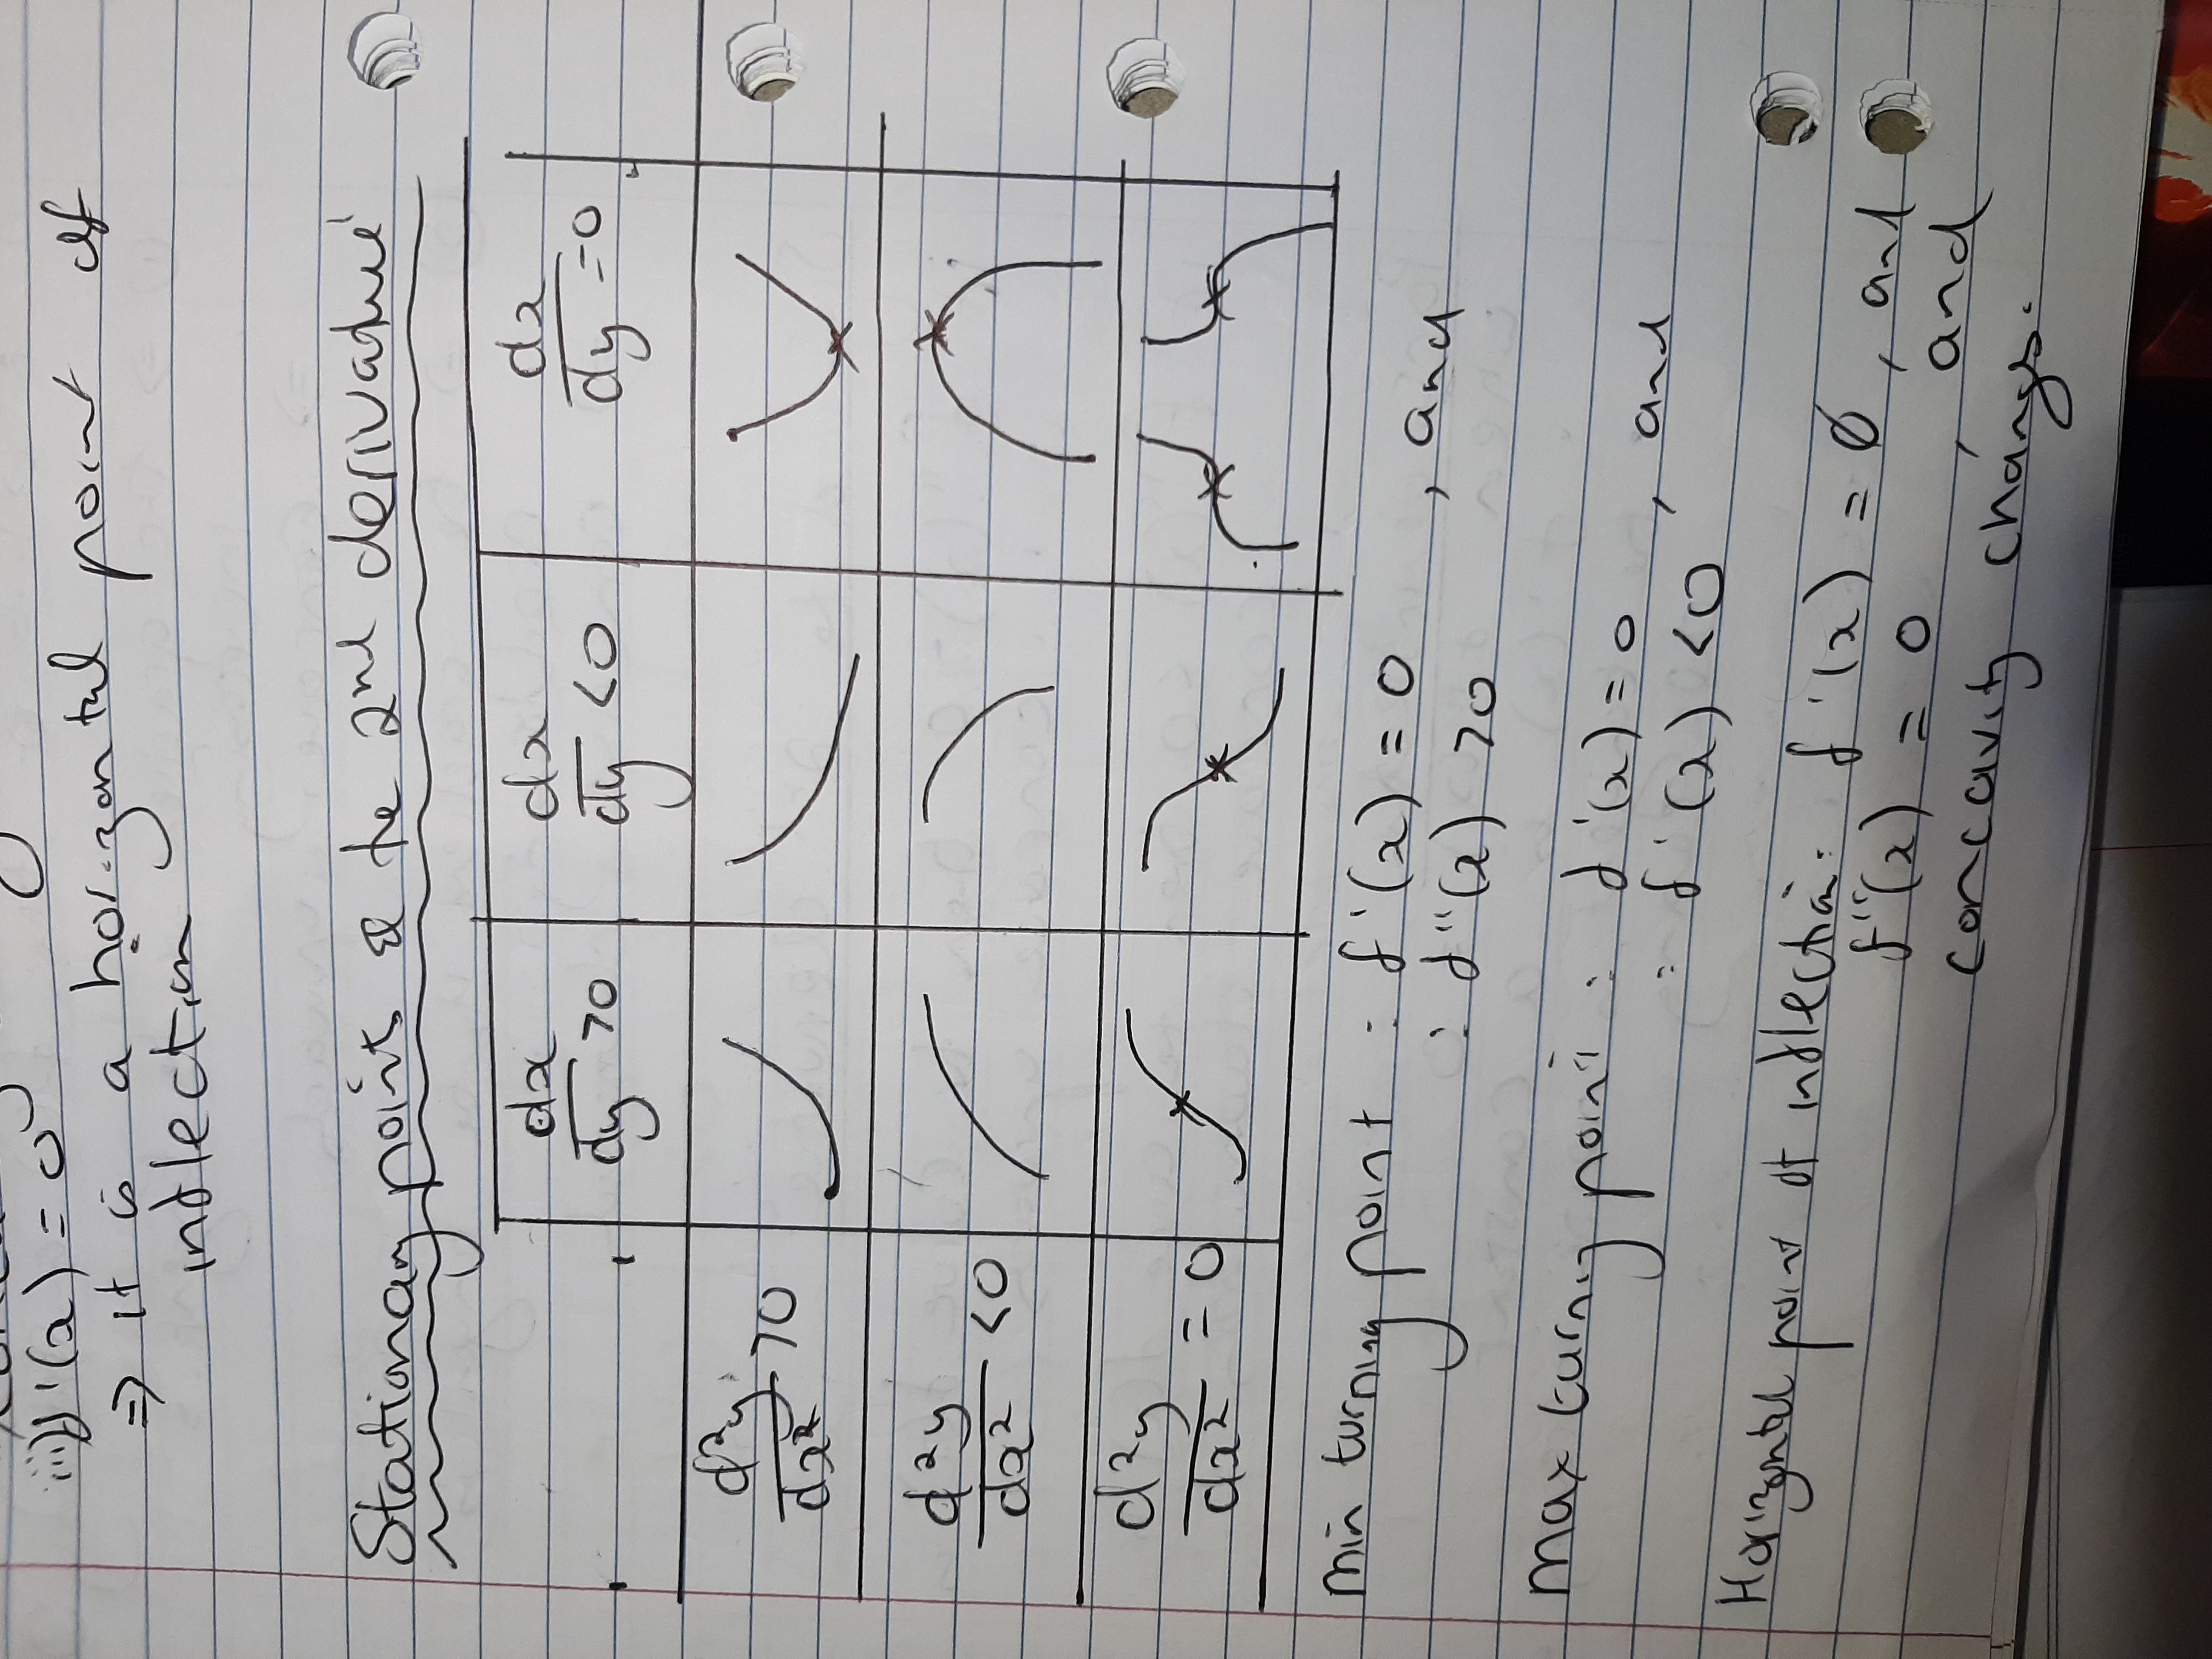 iii) f'(x) = 0
⇒ it is a horizontal point of
inflection
Stationary points & the 2nd derivative
dx/dy >0 dx/dy <0 dx/dy =0
d²y/dx² >0
d²y/dx² <0
d²y/dx² = 0
min turning point : f'(x) = 0 , and
: f''(x) >0
max turning point : f'(x) = 0 , and
: f'(x) <0
Horizontal point of inflection: f'(x) = 0 , and
f''(x) = 0 , and
concavity changes.